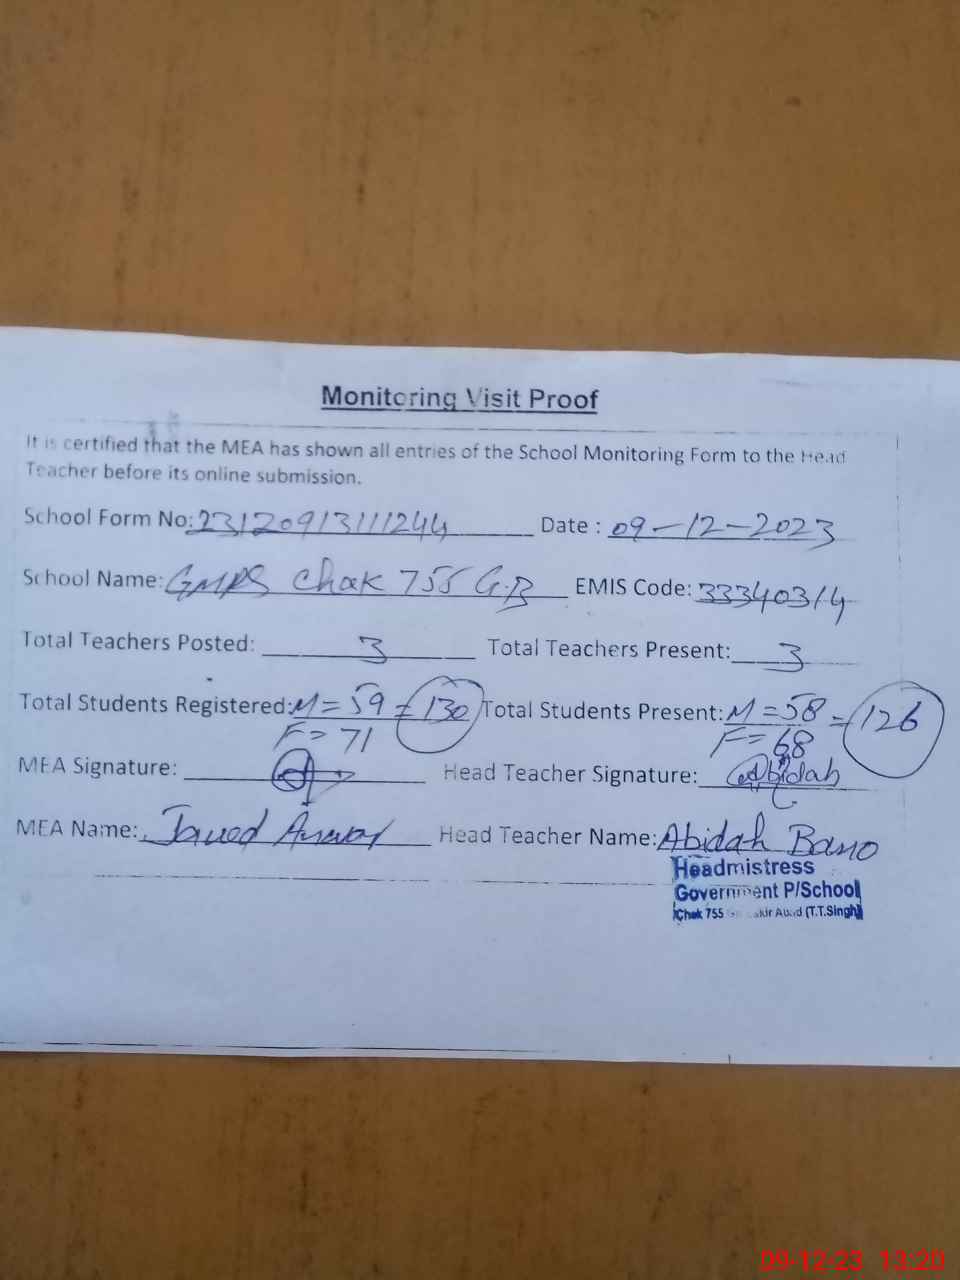 Monitoring Visit Proof
It is certified that the MEA has shown all entries of the School Monitoring Form to the Head
Teacher before its online submission.
School Form No: 23120913111244 Date : 09-12-2023
School Name: GMPS Chak 755 G.B EMIS Code: 33340314
Total Teachers Posted: 3 Total Teachers Present: 3
Total Students Registered: M = 59 = 130 Total Students Present: M = 58 = 126
F = 71 F = 68
MEA Signature: Head Teacher Signature: Abidah
MEA Name: Javed Anwar Head Teacher Name: Abidah Bano
Headmistress
Government P/School
Chak 755 (T.T.Singh)
09-12-23 13:20